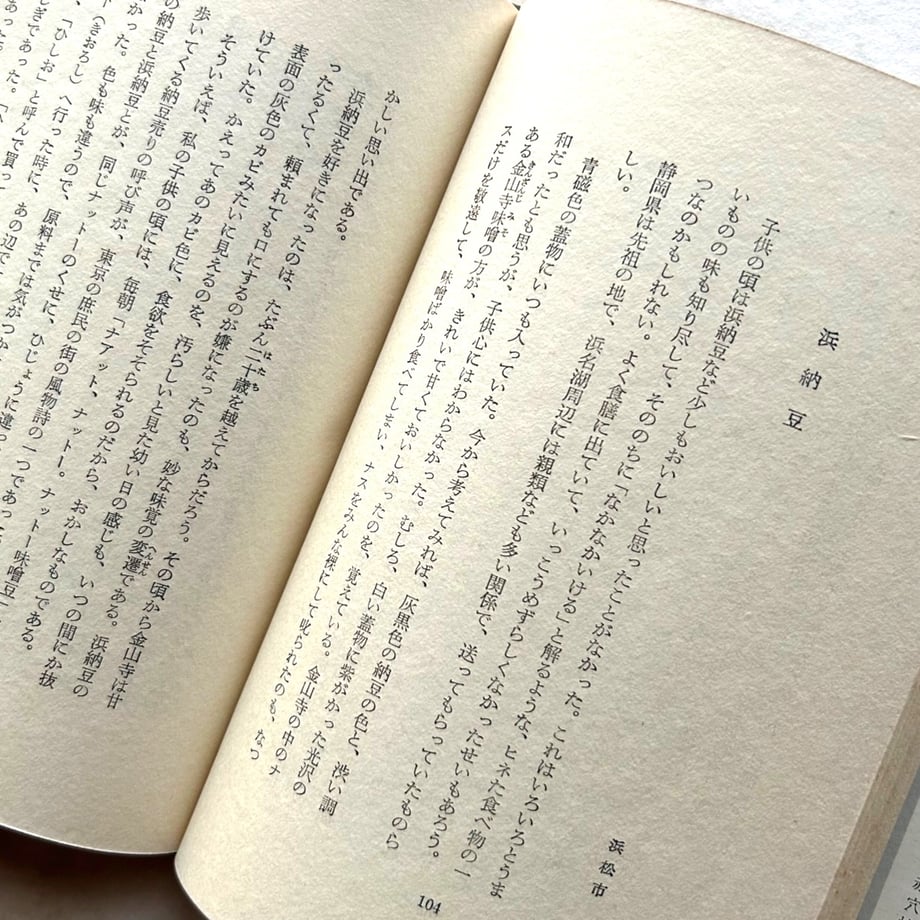 浜納豆
浜松市
子供の頃は浜納豆など少しもおいしいと思ったことがなかった。これはいろいろとうま
いものの味も知り尽して、そののちに「なかなかいける」と解るような、ヒネた食べ物の一
つなのかもしれない。よく食膳に出ていて、いっこうめずらしくなかったせいもあろう。
静岡県は先祖の地で、浜名湖周辺には親類なども多い関係で、送ってもらっていたものら
しい。
青磁色の蓋物にいつも入っていた。今から考えてみれば、灰黒色の納豆の色と、渋い調
和だったとも思うが、子供心にはわからなかった。むしろ、白い蓋物に紫がかった光沢の
ある金山寺味噌の方が、きれいで甘くておいしかったのを、覚えている。金山寺の中のナ
スだけを敬遠して、味噌ばかり食べてしまい、ナスをみんな裸にして叱られたのも、なつ
104
かしい思い出である。
浜納豆を好きになったのは、たぶん二十歳を越えてからだろう。その頃から金山寺は甘
ったるくて、頼まれても口にするのが嫌になったのも、妙な味覚の変遷である。浜納豆の
表面の灰色のカビみたいに見えるのを、汚らしいと見た幼い日の感じも、いつの間にか抜
けていた。かえってあのカビ色に、食欲をそそられるのだから、おかしなものである。
そういえば、私の子供の頃には、毎朝「ナアット、ナットー。ナットー味噌豆」
歩いてくる納豆売りの呼び声が、東京の庶民の街の風物詩の一つであっ
の納豆と浜納豆とが、同じナットーのくせに、ひじょうに違っ
かった。色も味も違うので、原料までは気がつか
（きおろし）へ行った時に、あの辺で
「ひしお」と呼んで買っ
ぎであった。